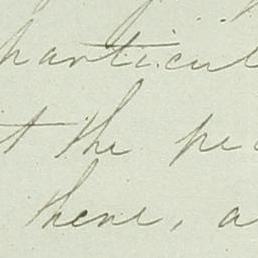 particul
t the pe
there, a